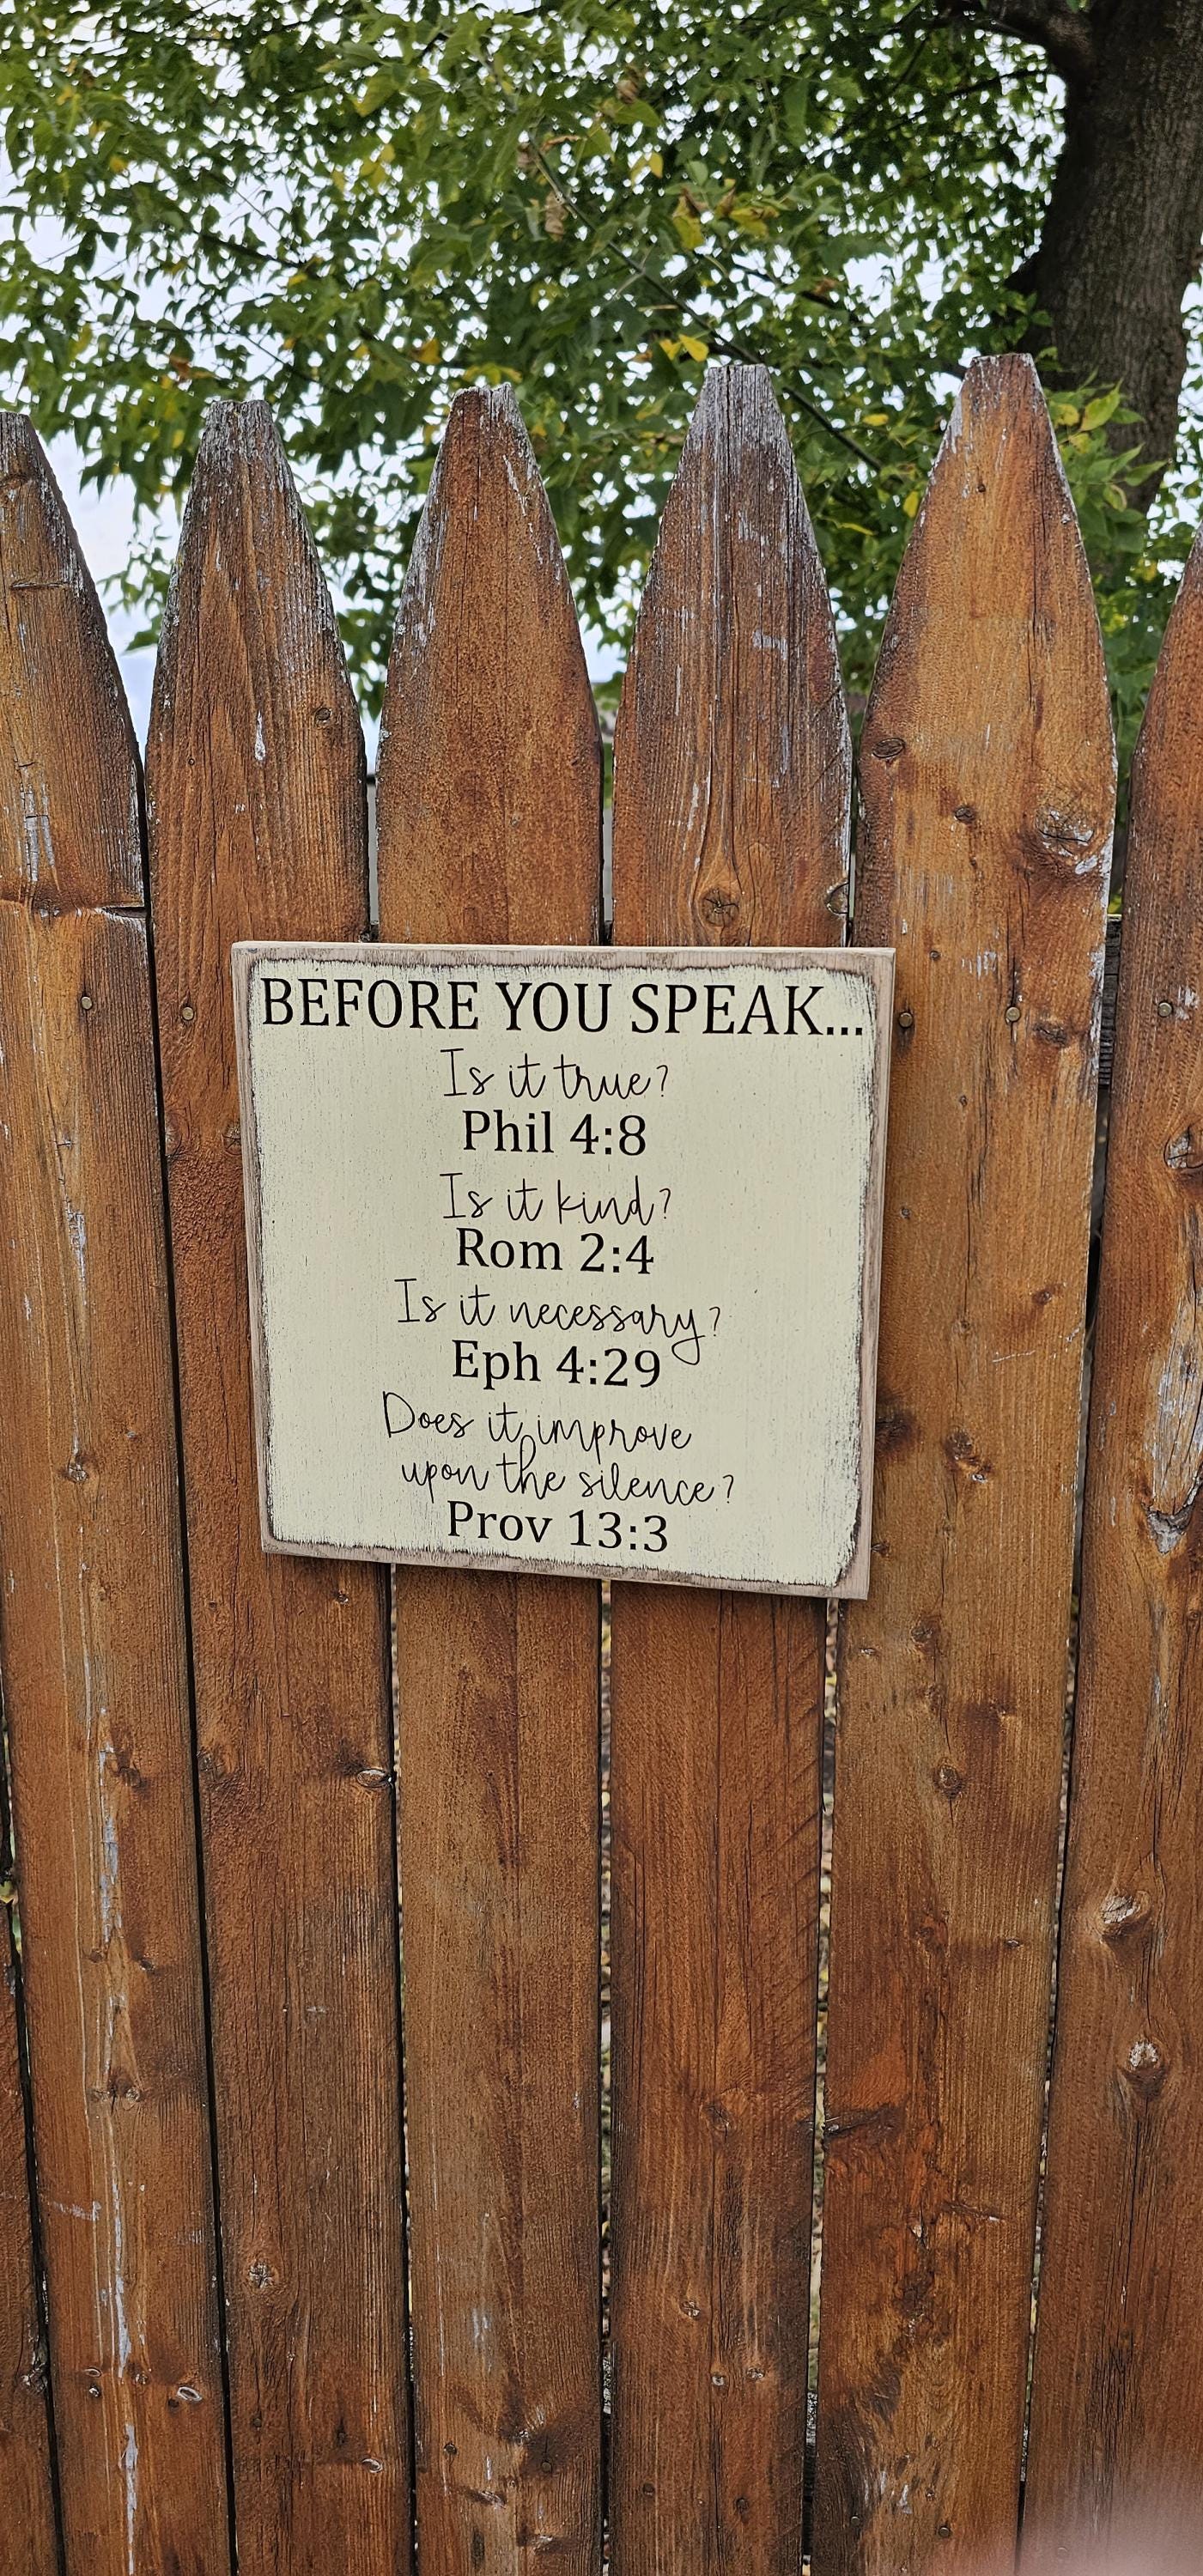 BEFORE YOU SPEAK...
Is it true?
Phil 4:8
Is it kind?
Rom 2:4
Is it necessary?
Eph 4:29
Does it improve
upon the silence?
Prov 13:3